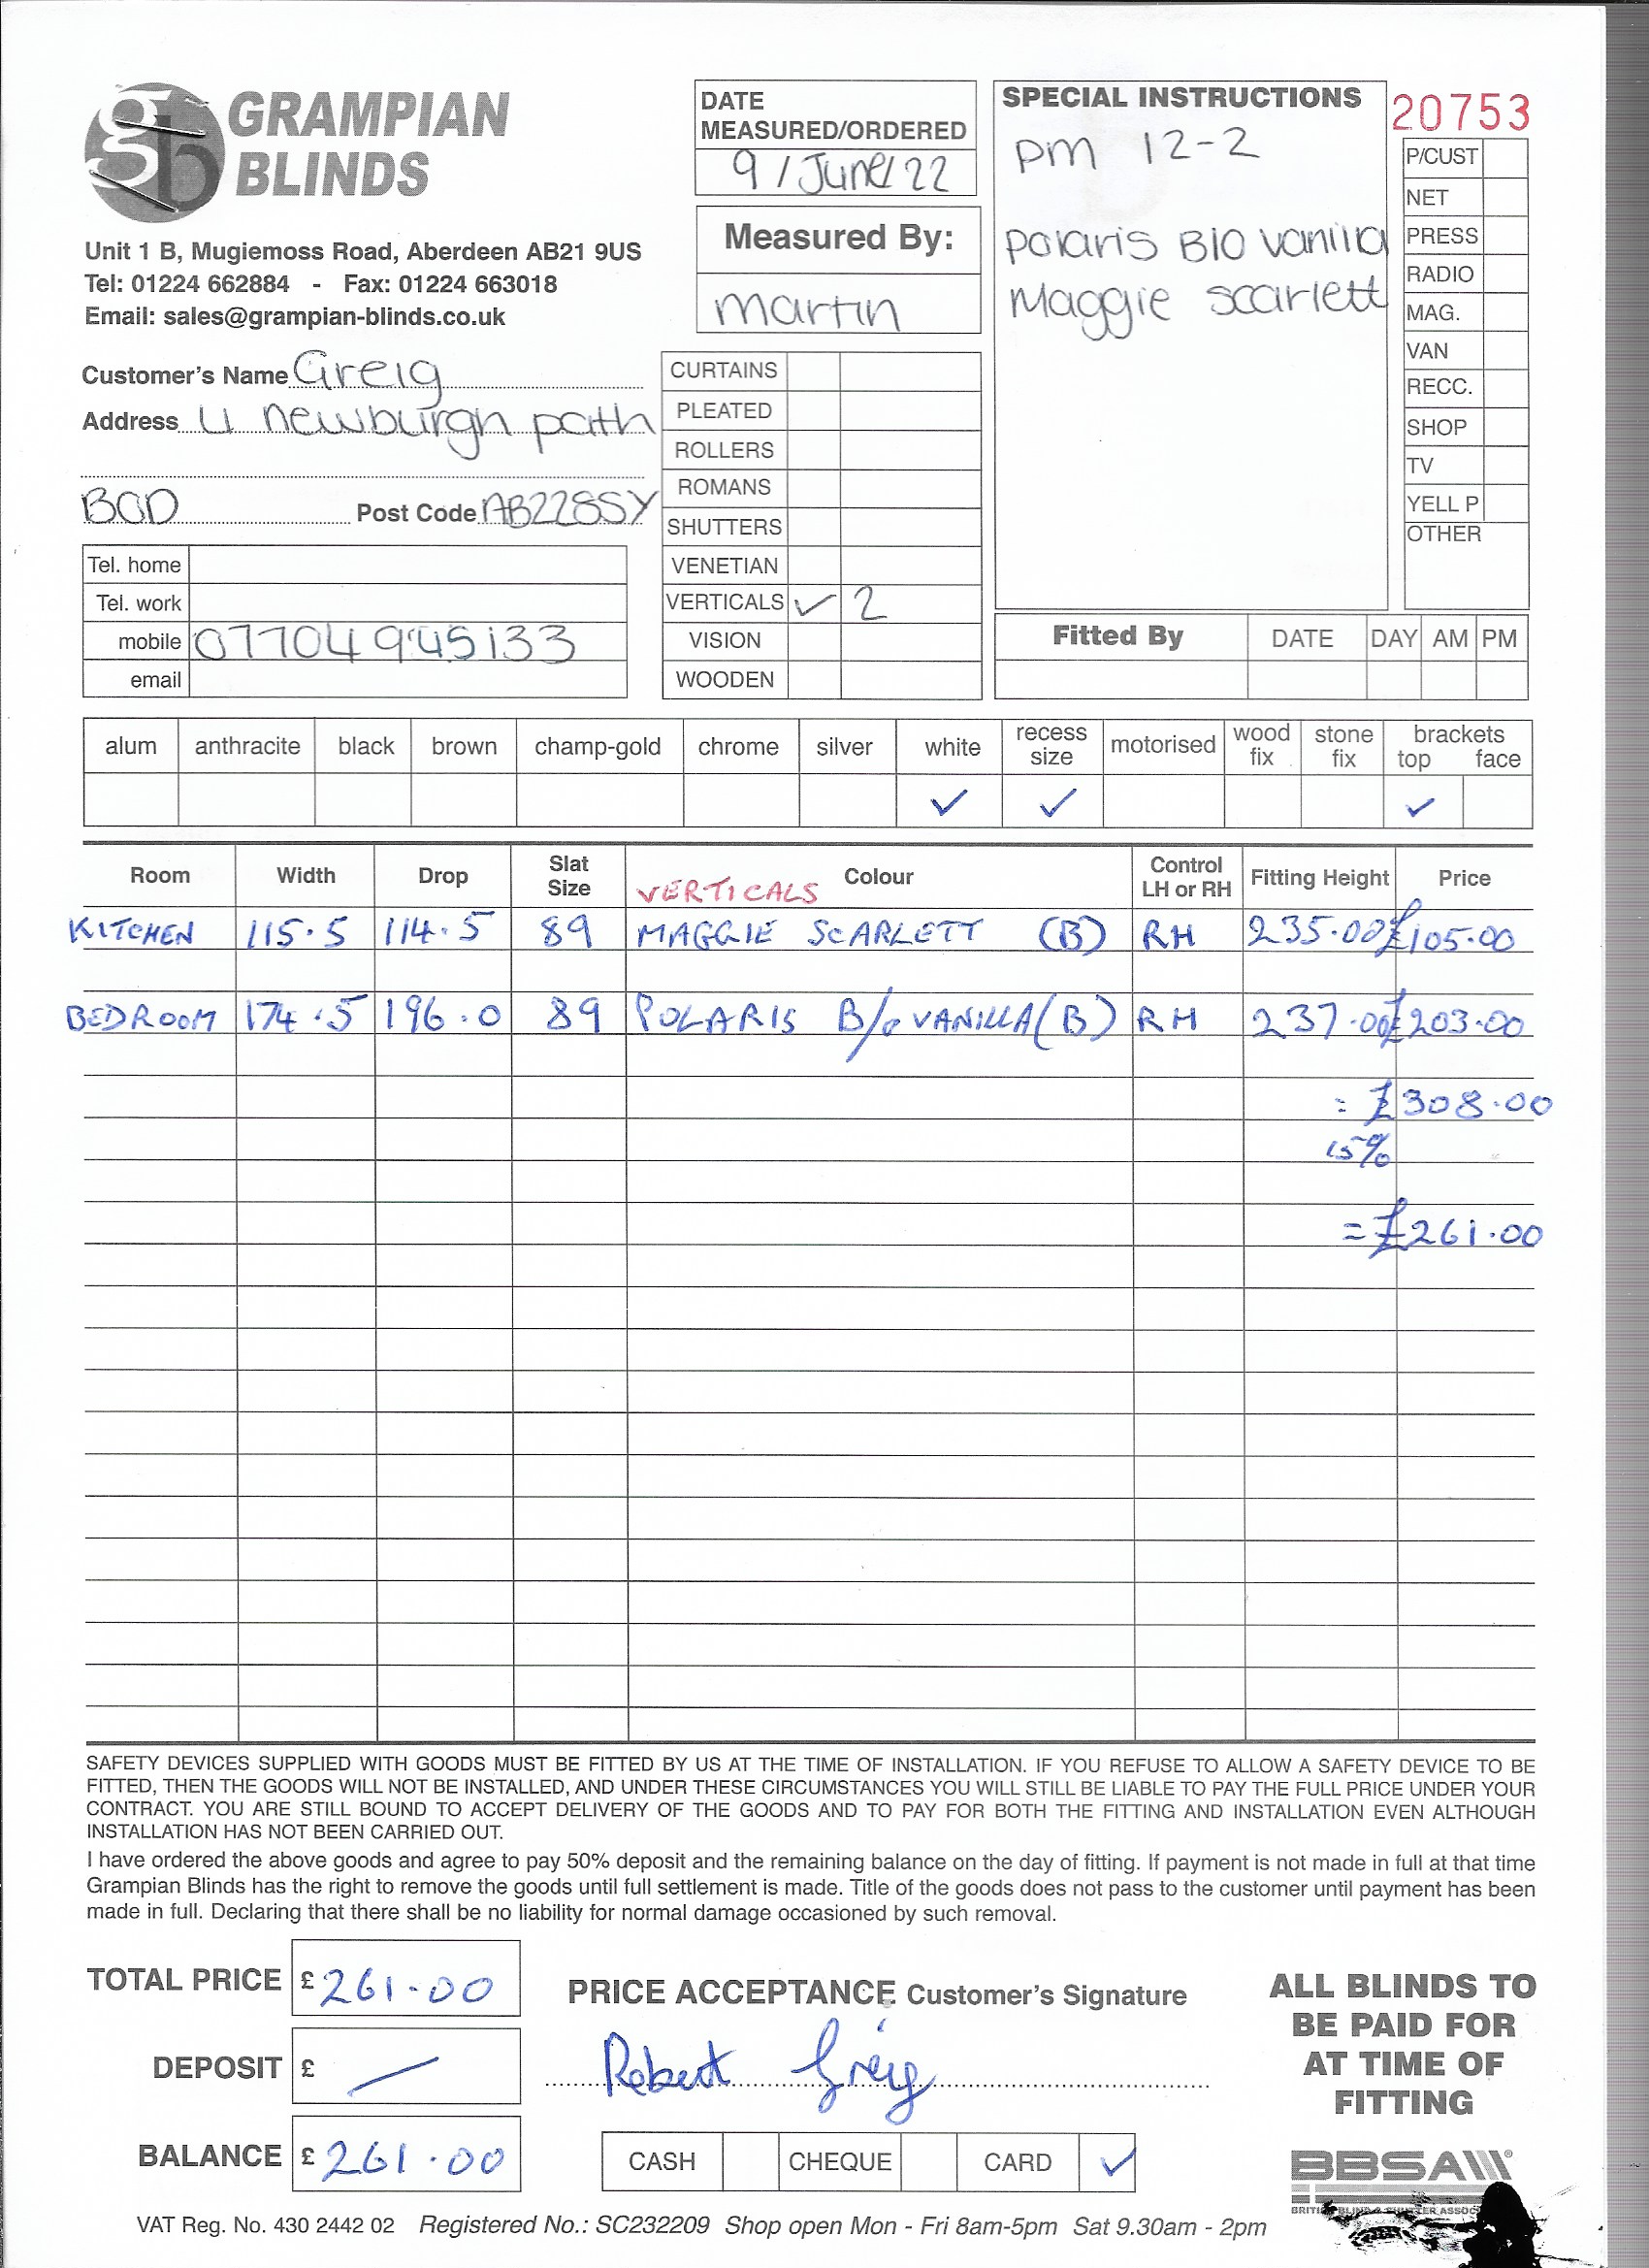 GRAMPIAN
BLINDS
Unit 1 B, Mugiemoss Road, Aberdeen AB21 9US
Tel: 01224 662884 - Fax: 01224 663018
Email: sales@grampian-blinds.co.uk
DATE
MEASURED/ORDERED
9 / June / 22
Measured By:
martin
SPECIAL INSTRUCTIONS
pm 12-2
Polaris B/O vanilla
Maggie scarlett
20753
P/CUST
NET
PRESS
RADIO
MAG.
VAN
RECC.
SHOP
TV
YELL P
OTHER
Customer's Name Greig
Address newburgh path
BOD Post Code AB22 8SY
Tel. home
Tel. work
mobile 07704945133
email
CURTAINS
PLEATED
ROLLERS
ROMANS
SHUTTERS
VENETIAN
VERTICALS ✓ 2
VISION
WOODEN
Fitted By DATE DAY AM PM
alum anthracite black brown champ-gold chrome silver white recess size motorised wood fix stone fix brackets top face
✓ ✓ ✓
Room Width Drop Slat Size VERTICALS Colour Control LH or RH Fitting Height Price
KITCHEN 115.5 114.5 89 MAGGIE SCARLETT (B) RH 235.00 £105.00
BEDROOM 174.5 196.0 89 POLARIS B/o VANILLA (B) RH 237.00 £203.00
= £308.00
15%
= £261.00
SAFETY DEVICES SUPPLIED WITH GOODS MUST BE FITTED BY US AT THE TIME OF INSTALLATION. IF YOU REFUSE TO ALLOW A SAFETY DEVICE TO BE
FITTED, THEN THE GOODS WILL NOT BE INSTALLED, AND UNDER THESE CIRCUMSTANCES YOU WILL STILL BE LIABLE TO PAY THE FULL PRICE UNDER YOUR
CONTRACT. YOU ARE STILL BOUND TO ACCEPT DELIVERY OF THE GOODS AND TO PAY FOR BOTH THE FITTING AND INSTALLATION EVEN ALTHOUGH
INSTALLATION HAS NOT BEEN CARRIED OUT.
I have ordered the above goods and agree to pay 50% deposit and the remaining balance on the day of fitting. If payment is not made in full at that time
Grampian Blinds has the right to remove the goods until full settlement is made. Title of the goods does not pass to the customer until payment has been
made in full. Declaring that there shall be no liability for normal damage occasioned by such removal.
TOTAL PRICE £ 261.00
DEPOSIT £ —
BALANCE £ 261.00
PRICE ACCEPTANCE Customer's Signature
Robert Greig
CASH CHEQUE CARD ✓
ALL BLINDS TO
BE PAID FOR
AT TIME OF
FITTING
BBSA
VAT Reg. No. 430 2442 02 Registered No.: SC232209 Shop open Mon - Fri 8am-5pm Sat 9.30am - 2pm